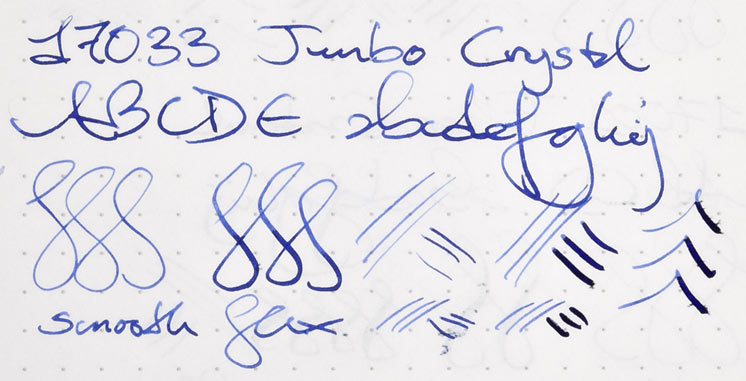 27033 Jumbo Crystal
ABCDE abcdefghij
smooth flex